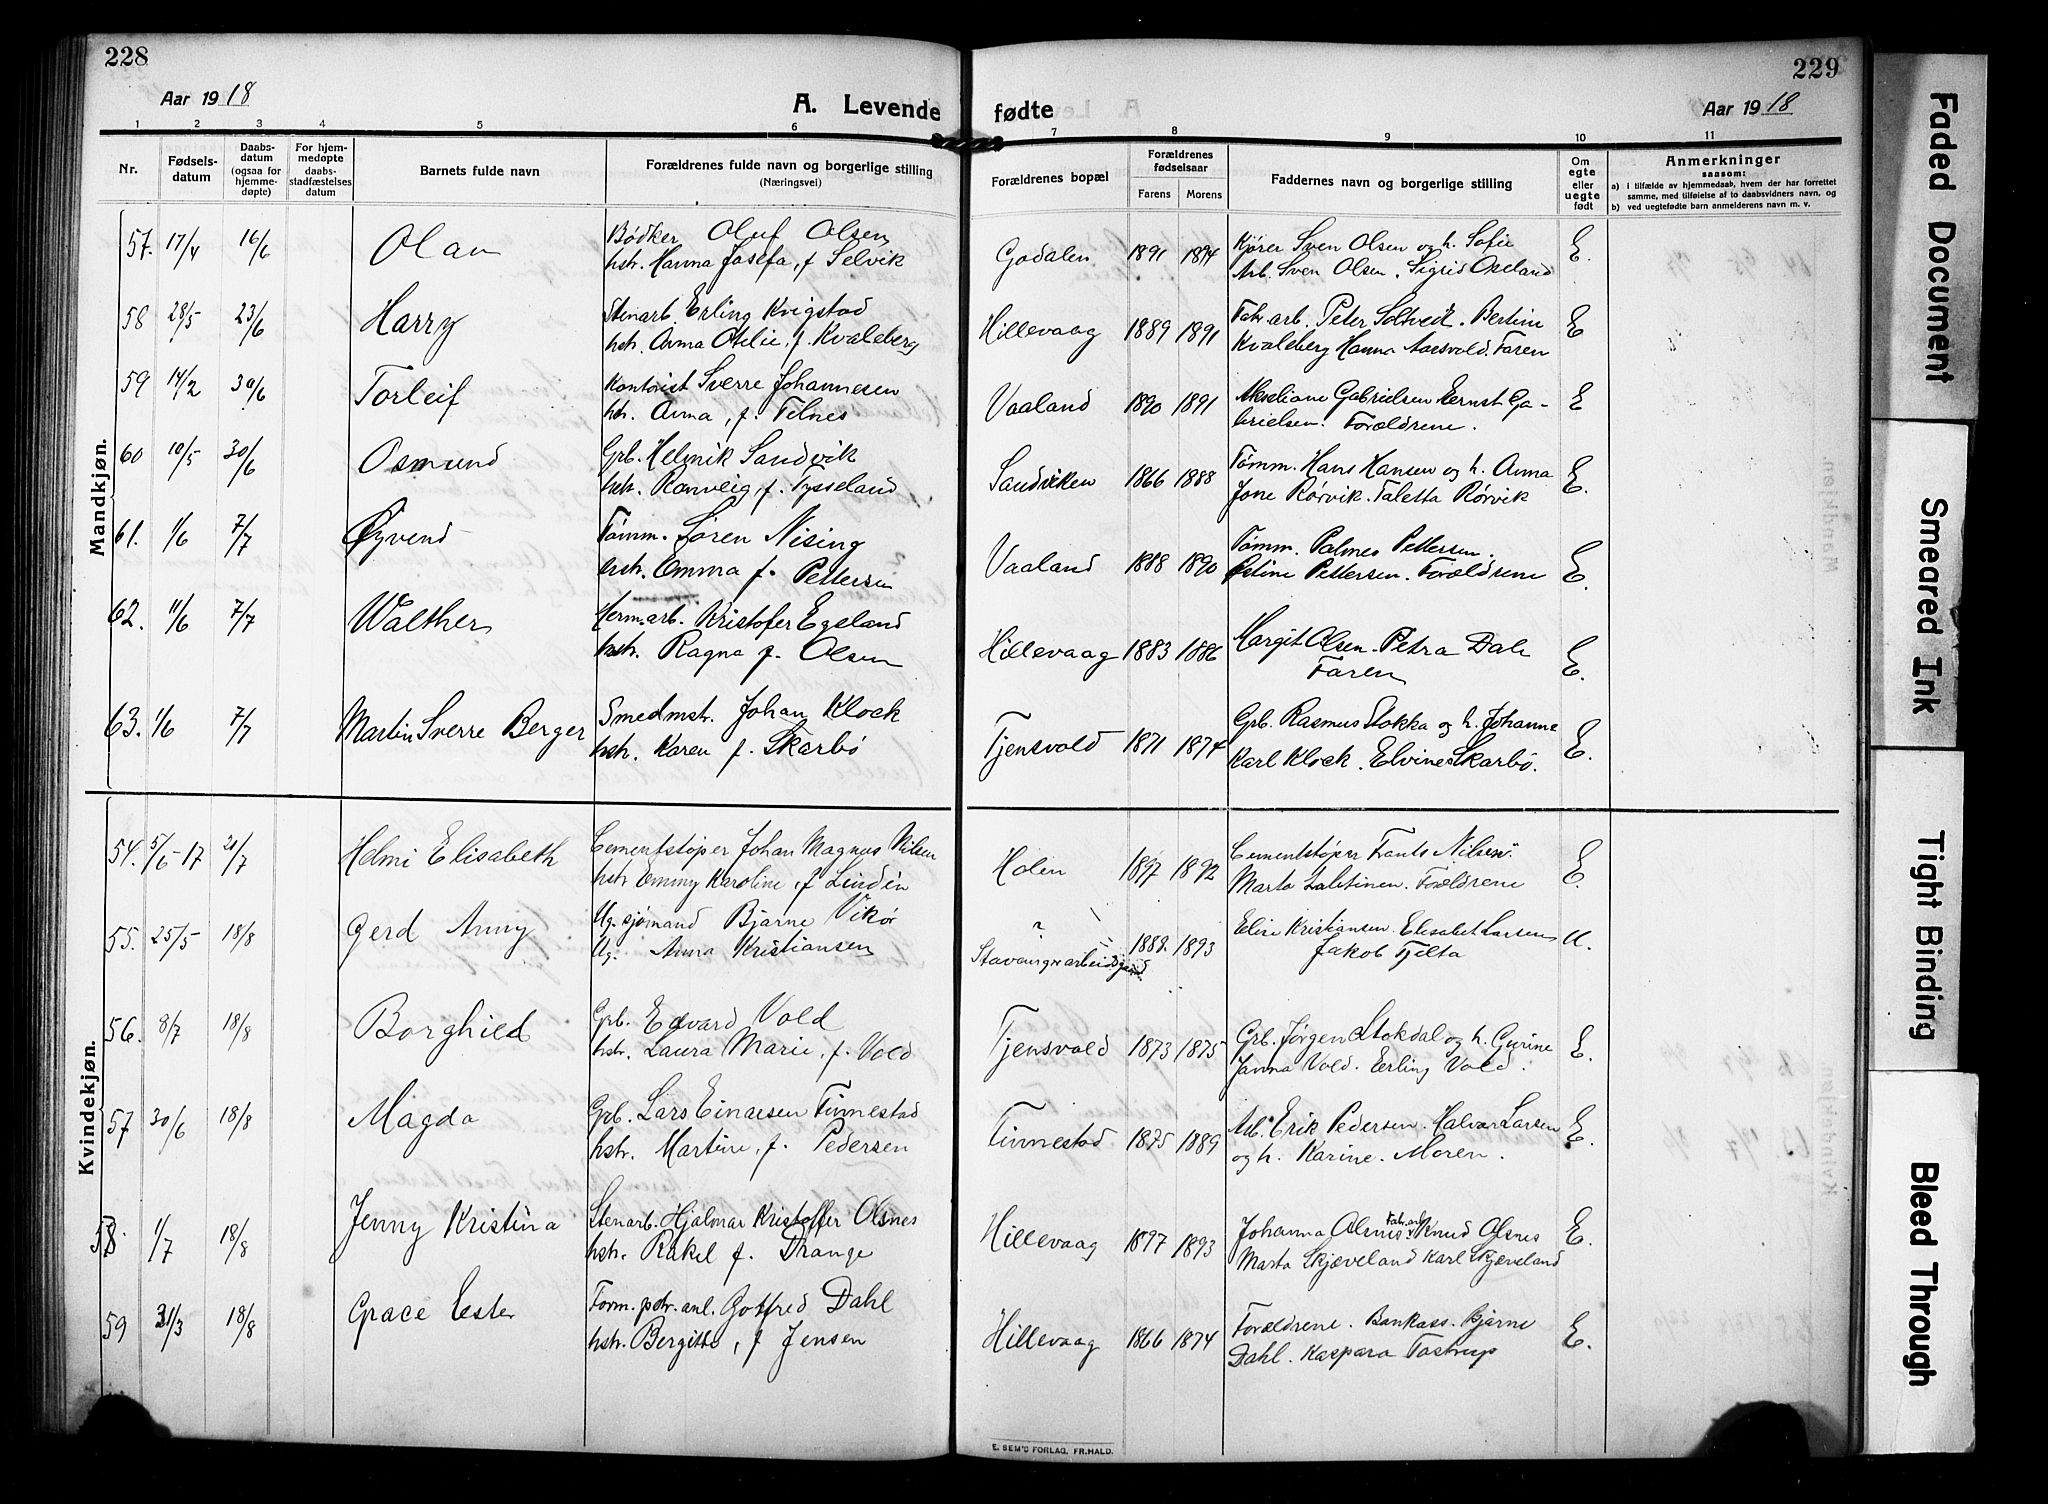 228
Aar 1918
A. Levende
1 2 3 4 5 6
Nr.
Fødsels-
datum
Daabs-
datum
(ogsaa for
hjemme-
døpte)
For hjem-
medøpte
daabs-
stadfæstelses
datum
Barnets fulde navn
Forældrenes fulde navn og borgerlige stilling
(Næringsvei)
Mandkjøn.
57. 17/4 16/6 Olav
Bødker Oluf Olsen
hstr. Hanna Josefa, f. Selvik
58 28/5 23/6 Harry
Stenarb. Erling Kvigstad
hstr. Anna Otelie, f. Kvaleberg
59 14/2 30/6 Torleif
Kontorist Sverre Johannesen
hstr. Anna, f. Felnes
60 10/5 30/6 Osmund
Grb. Helmik Sandvik
hstr. Ranveig, f. Tysseland
61. 1/6 7/7 Øyvend
Tømm. Søren Nising
hstr. Emma f. Pettersen
62. 11/6 7/7 Walther
Herm.arb. Kristofer Egeland
hstr. Ragna f. Olsen
63. 1/6 7/7 Martin Sverre Berger
Smedmstr. Johan Klock
hstr. Karen f. Skarbø
Kvindekjøn.
54. 5/6-17 21/7 Helmi Elisabeth
Cementstøper Johan Magnus Nilsen
hstr. Emmy Karoline, f Lindén
55. 25/5 18/8 Gerd Anny
Ug. sjømand Bjarne Vikør
Ug. Anna Kristiansen
56. 8/7 18/8 Borghild
Grb. Edvard Vold
hstr. Laura Marie, f. Vold
57 30/6 18/8 Magda
Grb. Lars Einarsen Finnestad
hstr. Martine, f. Pedersen
58. 1/7 18/8 Jenny Kristina
Stenarb. Hjalmar Kristoffer Olsnes
hstr. Rakel f. Trange
59 31/3 18/8 Grace Ester
Form. pstr. anl. Gotfred Dahl
hstr. Bergitte, f Jensen
229
fødte
Aar 1918
7 8 9 10 11
Forældrenes bopæl
Forældrenes
fødselsaar
Farens Morens
Faddernes navn og borgerlige stilling
Om
egte
eller
uegte
født
Anmerkninger
saasom:
a) i tilfælde av hjemmedaab, hvem der har forrettet
samme, med tilføielse af to daabsvidners navn, og
b) ved uegtefødte barn anmelderens navn m. v.
Godalen 1891 1894
Kjører Sven Olsen og h. Sofie E.
Arb. Sven Olsen. Sigrid Oseland
Hillevaag 1889 1891
Fabr.arb. Peter Soltvedt. Bertine E
Kvaleberg Hanna Aarsvold. Faren
Vaaland 1890 1891
Akseliane Gabrielsen Ernst Ga- E
brielsen. Forældrene.
Sandviken 1866 1888
Tømm. Hans Hansen og h. Anna E.
Jone Rørvik. Taletta Rørvik
Vaaland 1888 1890
Tømm. Palmes Pettersen.
Stine Pettersen. Forældrene E.
Hillevaag 1883 1886
Margit Olsen. Petra Dale
Faren E.
Tjensvold 1871 1874
Grb. Rasmus Stokka og h. Johanne
Karl Klock. Elvine Skarbø. E.
Holen 1897 1892
Cementstøper Frants Nilsen.
Marta Salstinen. Forældrene E.
?
Stavanger arbeidsgaard 1888. 1893
Elise Kristiansen. Elisabet Larsen U.
Jakob Tjelta
Tjensvold 1873 1875
Grb. Jørgen Stokdal og h. Gurine E.
Janna Vold. Erling Vold.
Finnestad 1875 1889
Arb. Erik Pedersen. Halvar Larsen E.
og h. Karine. Moren.
Hillevaag 1897 1893
Johanna Olsnes. Fabr.arb. Knud Olsnes E.
Marta Skjæveland Karl Skjæveland
Hillevaag 1866 1874
Forældrene. Bankass. Bjarne E.
Dahl. Kaspara Tastrup
E. SEM'S FORLAG, FR.HALD.
Faded Document
Smeared Ink
Tight Binding
Bleed Through